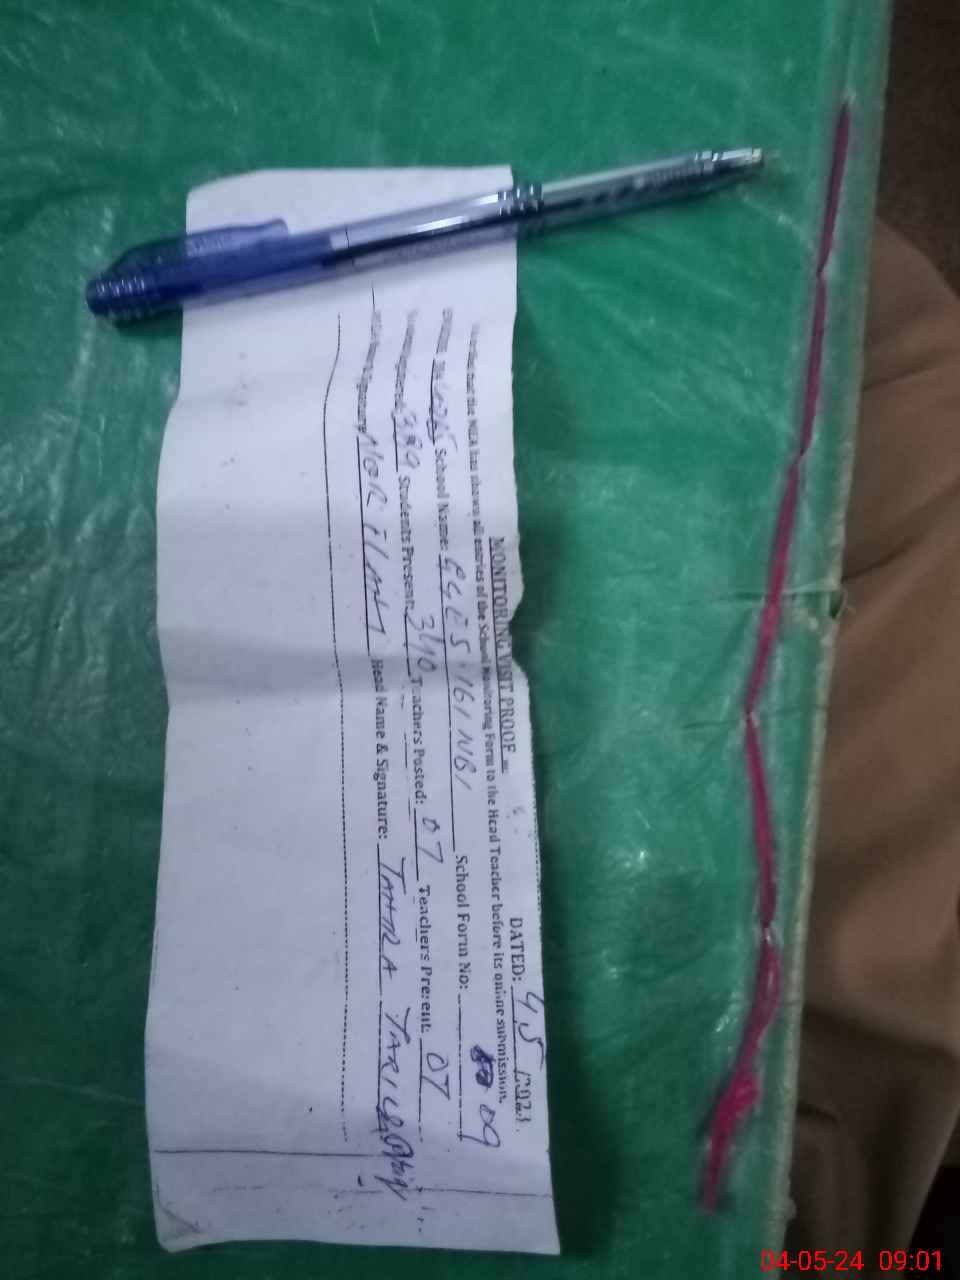 MONITORING VISIT PROOF DATED: 4 5 /2023
that the MEA has shown all entries of the School Monitoring Form to the Head Teacher before its online submission.
School Name: GGES 161 NB School Form No: 09
399 Students Present: 340 Teachers Posted: 07 Teachers Present: 07
Signature: NOOR Head Name & Signature: TAHIRA TARIQ
04-05-24 09:01